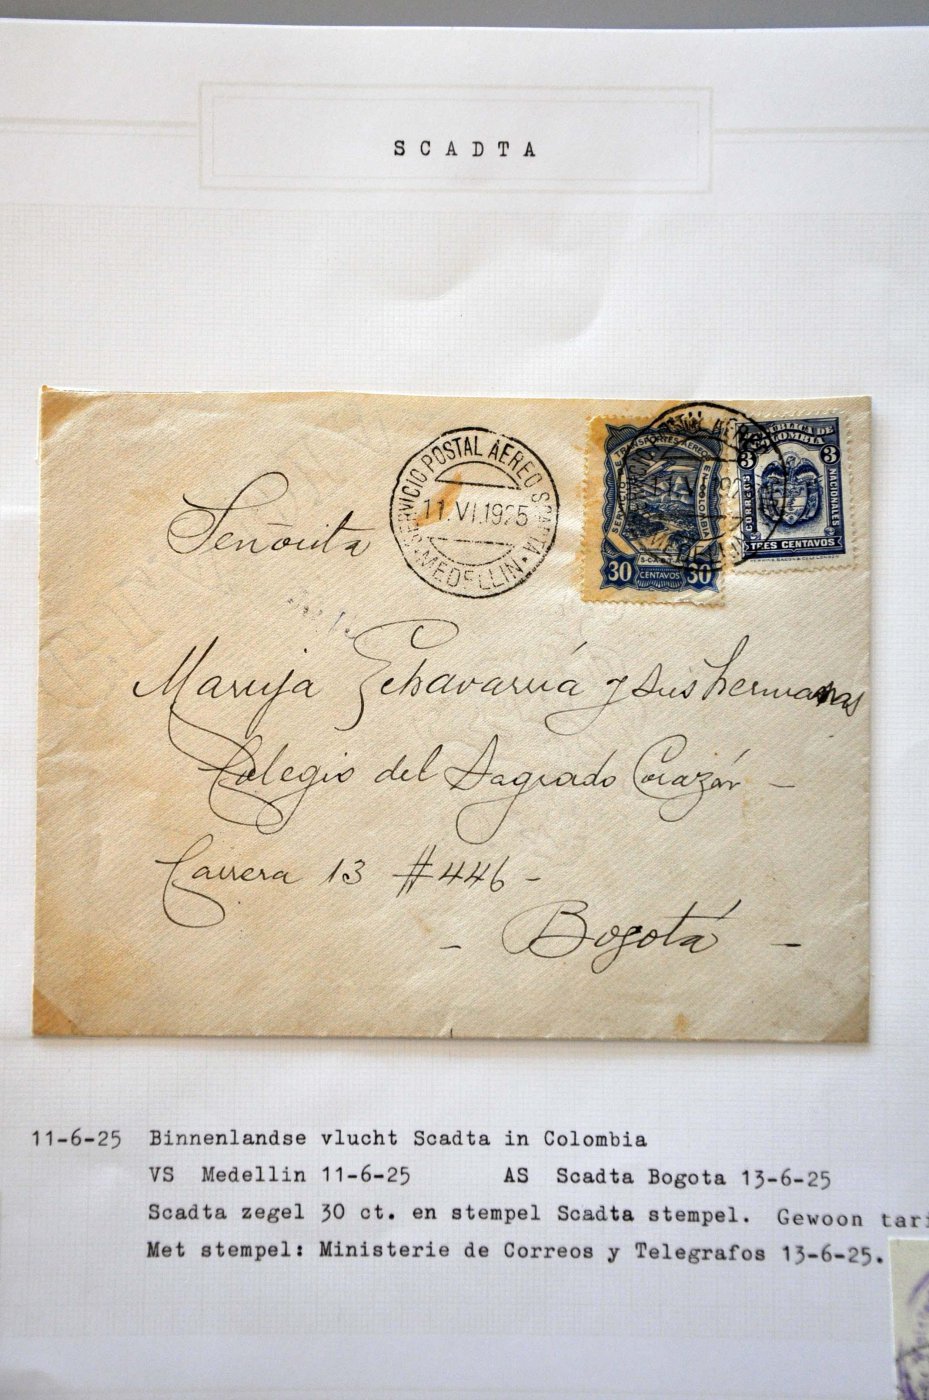 SCADTA
SERVICIO POSTAL AÉREO SCADTA
11.VI.1925
MEDELLIN
SERVICIO DE TRANSPORTES AÉREOS EN COLOMBIA
30 CENTAVOS 30
REPÚBLICA DE COLOMBIA
3 3
CORREOS NACIONALES
TRES CENTAVOS
Señorita
Maruja Echavarría y sus hermanas
Colegio del Sagrado Corazón -
Carrera 13 #446 -
- Bogotá -
11-6-25 Binnenlandse vlucht Scadta in Colombia
VS Medellin 11-6-25 AS Scadta Bogota 13-6-25
Scadta zegel 30 ct. en stempel Scadta stempel. Gewoon tari
Met stempel: Ministerie de Correos y Telegrafos 13-6-25.